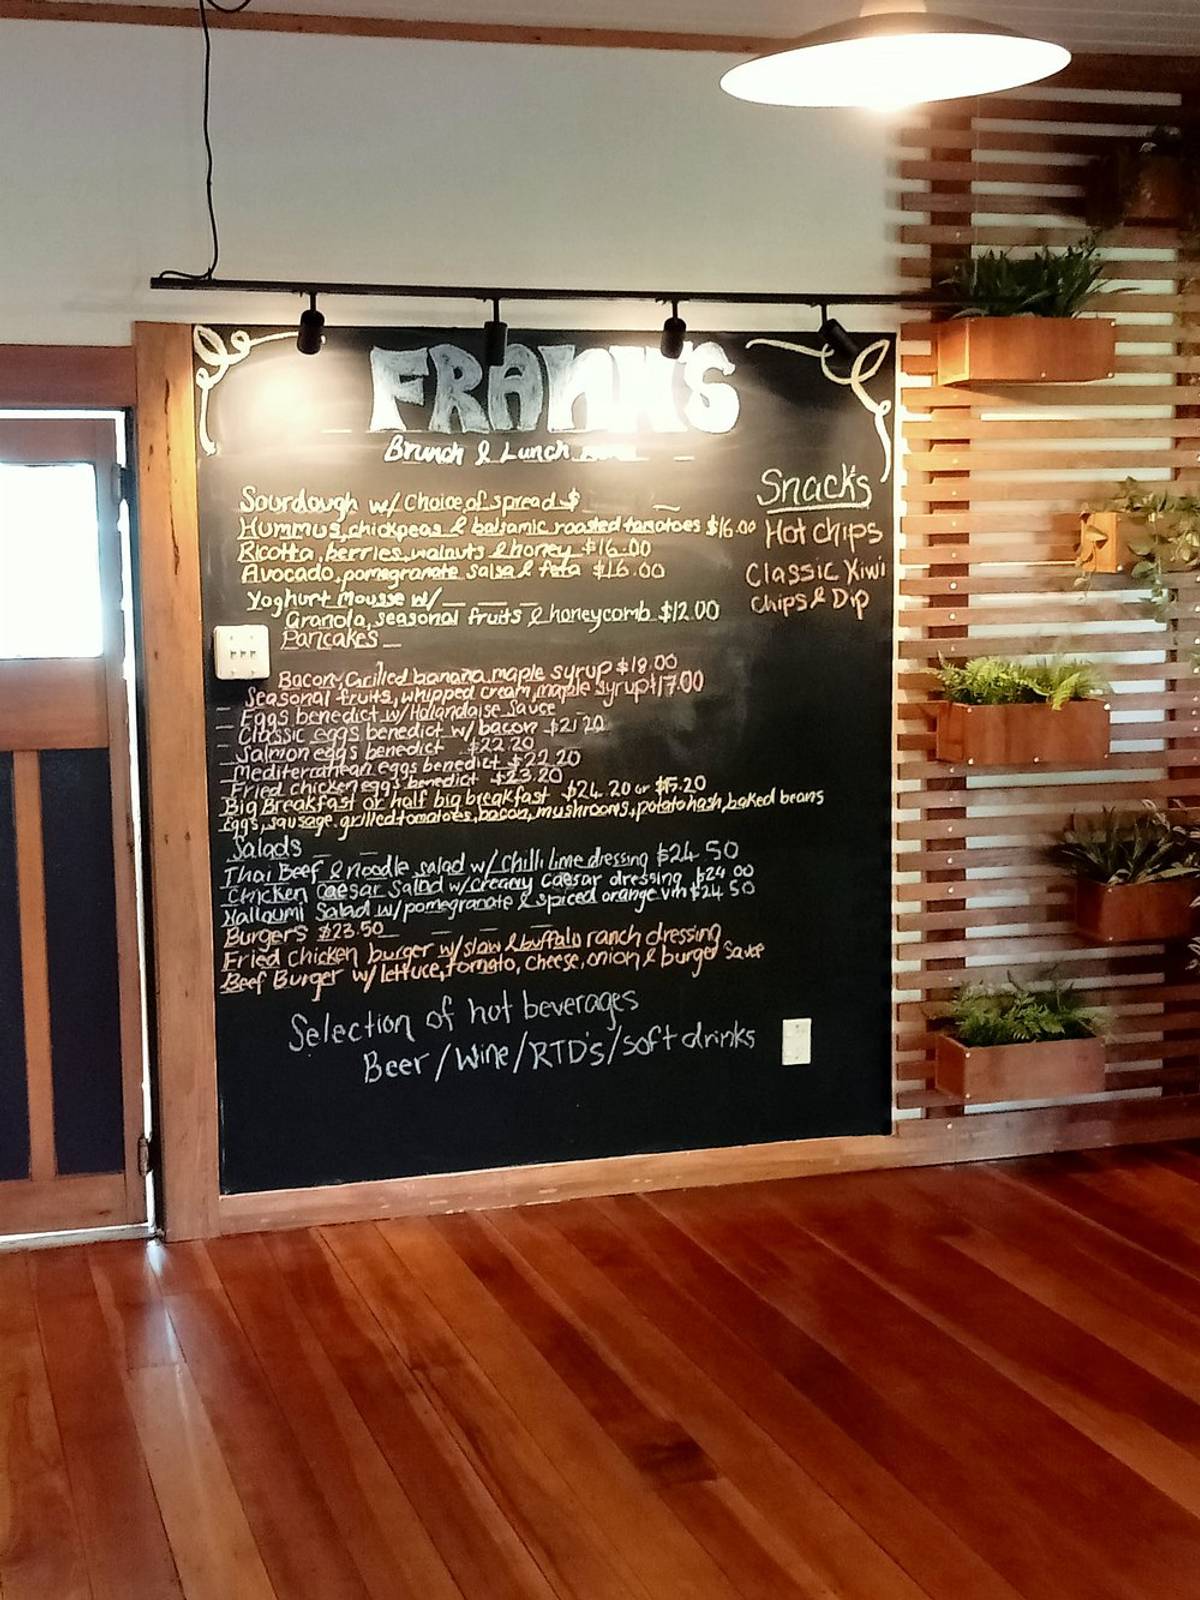 FRANK'S
Brunch & Lunch
Sourdough w/ Choice of spread $
Hummus, chickpeas & balsamic roasted tomatoes $16.00
Ricotta, berries, walnuts & honey $16.00
Avocado, pomegranate salsa & feta $16.00
Yoghurt mousse w/
Granola, seasonal fruits & honeycomb $12.00
Pancakes
Bacon, Grilled banana, maple syrup $18.00
Seasonal fruits, whipped cream, maple syrup $17.00
Eggs benedict w/ Hollandaise Sauce
Classic eggs benedict w/ bacon $21.20
Salmon eggs benedict $22.20
Mediterranean eggs benedict $22.20
Fried chicken eggs benedict $23.20
Big Breakfast or half big breakfast $24.20 or $15.20
Eggs, sausage, grilled tomatoes, bacon, mushrooms, potato hash, baked beans
Salads
Thai Beef & noodle salad w/ chilli lime dressing $24.50
Chicken Caesar Salad w/ creamy Caesar dressing $24.00
Halloumi Salad w/ pomegranate & spiced orange vin $24.50
Burgers $23.50
Fried Chicken burger w/ slaw & buffalo ranch dressing
Beef Burger w/ lettuce, tomato, cheese, onion & burger sauce
Selection of hot beverages
Beer/Wine/RTD's/soft drinks
Snacks
Hot chips
Classic Kiwi
Chips & Dip